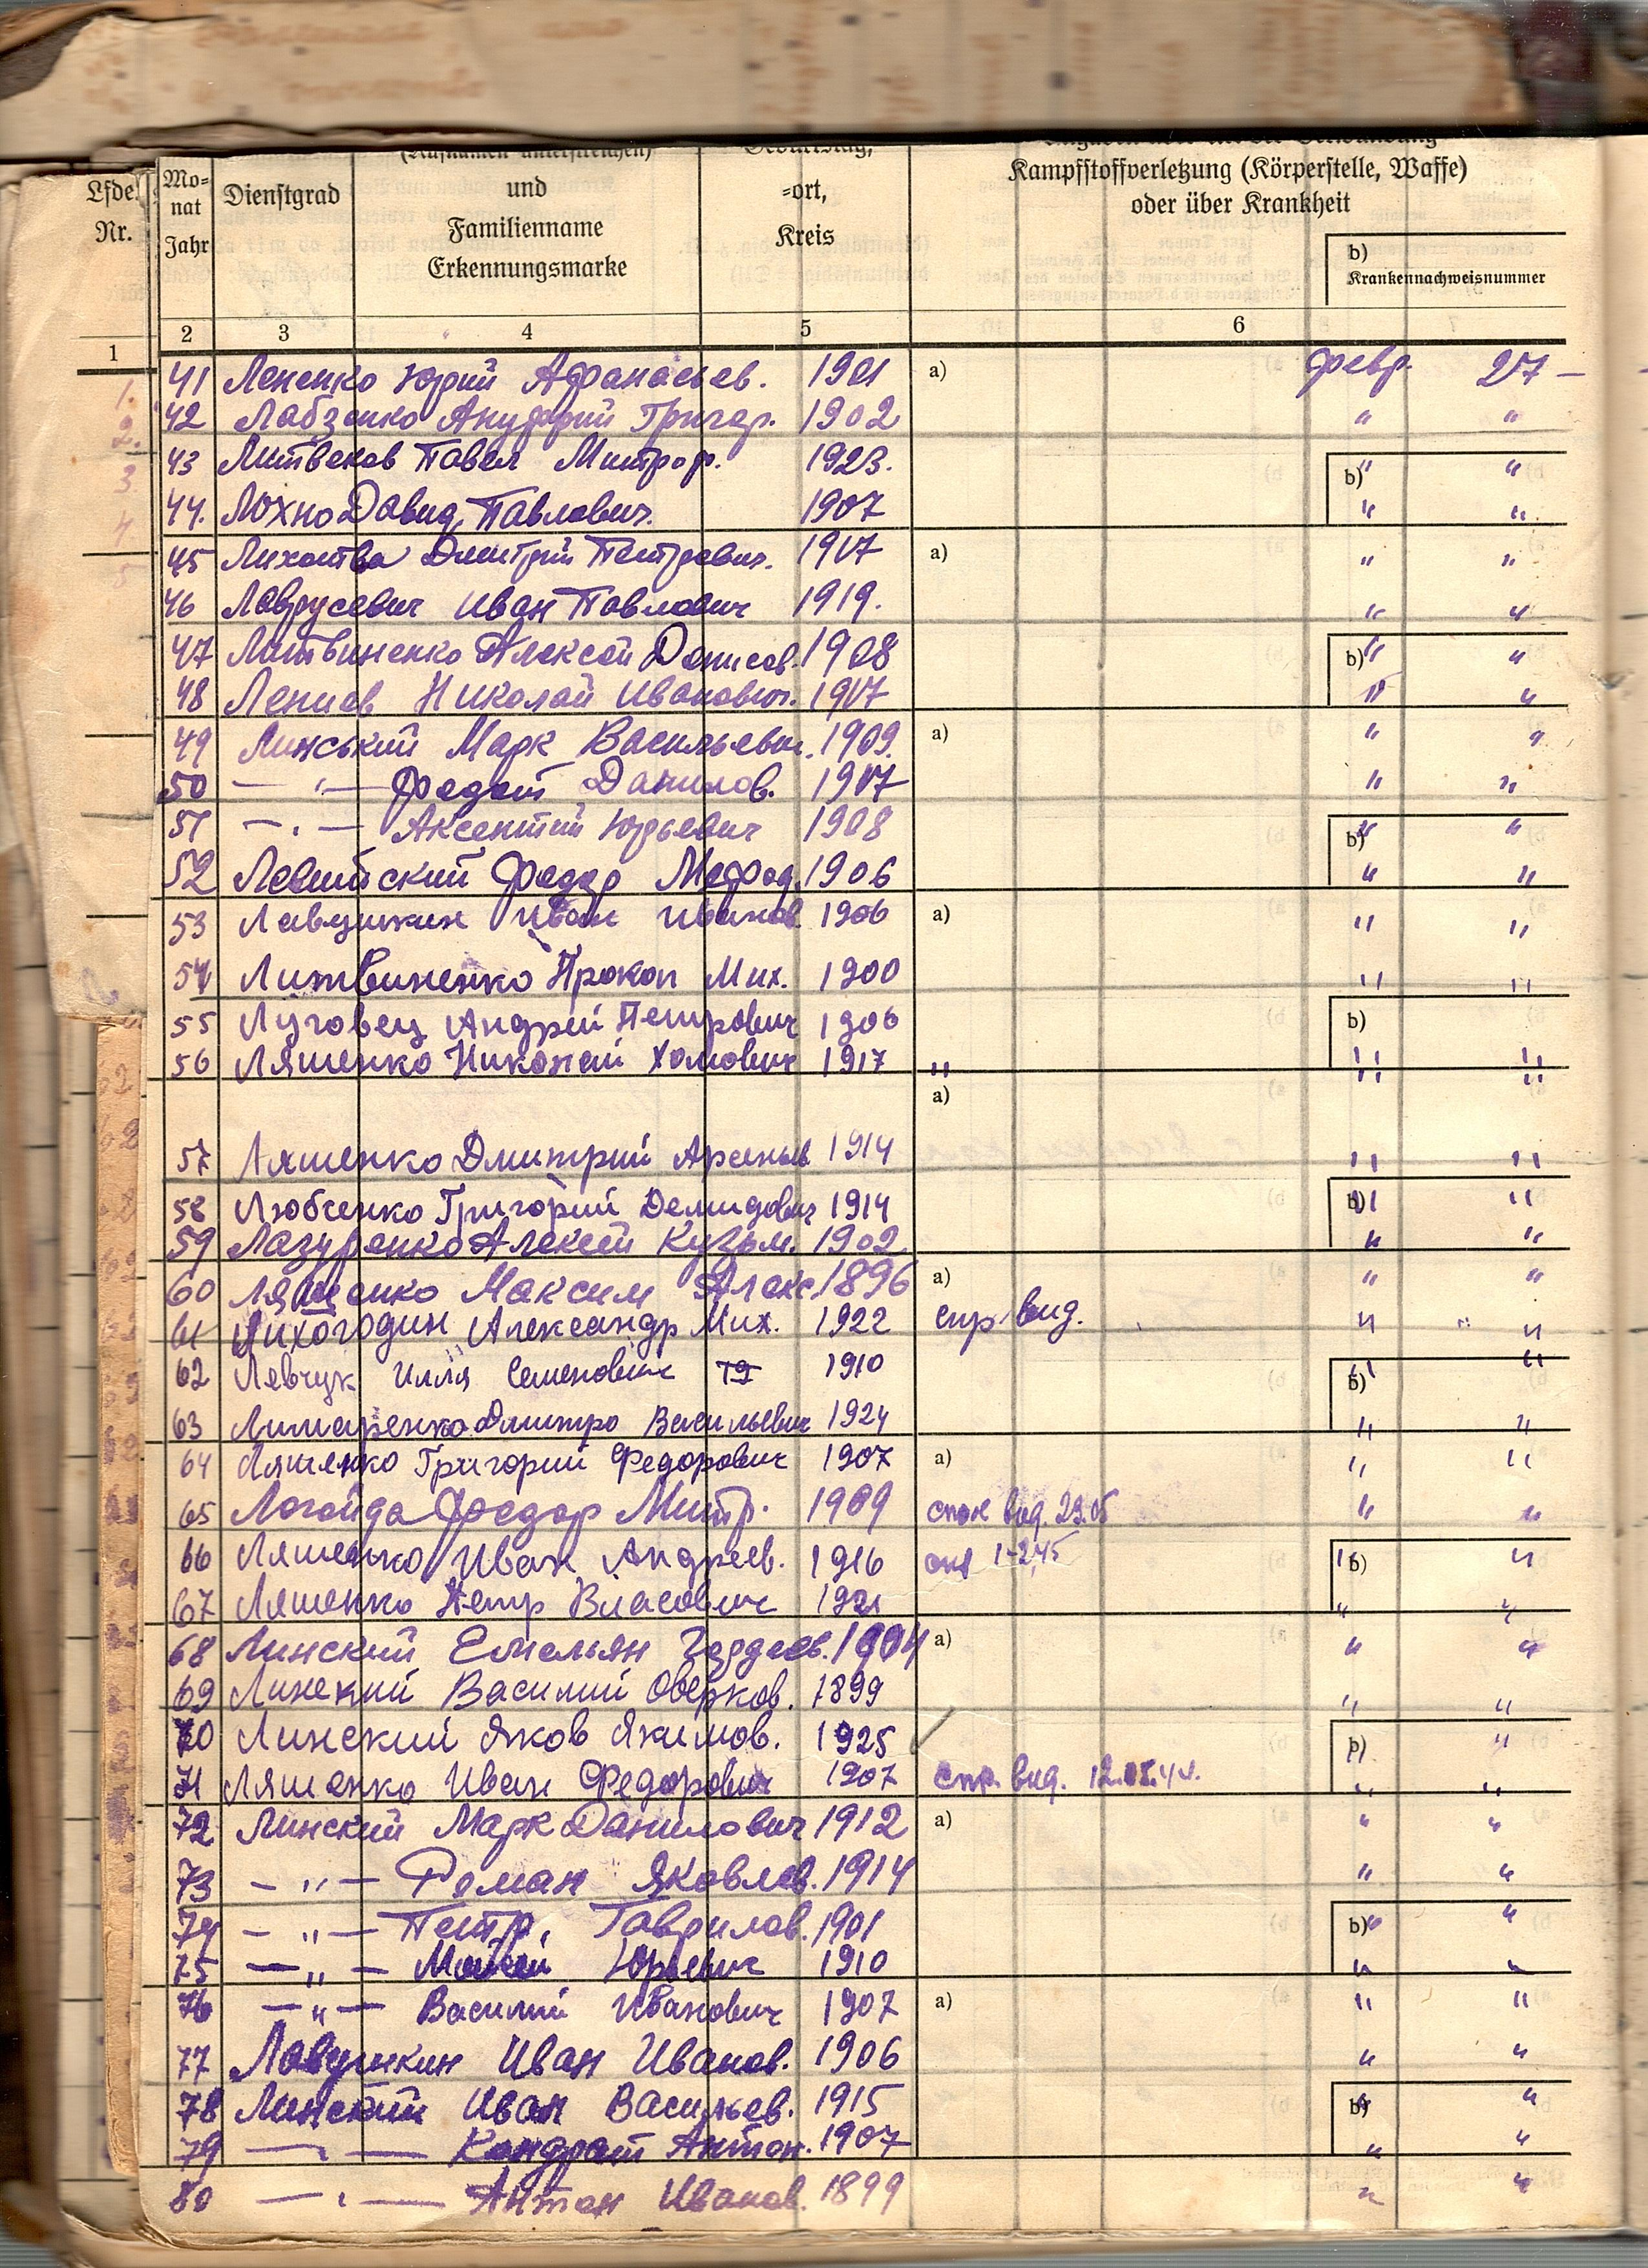 (Rufnamen unterstreichen)
Lfde. Nr.
Mo-
nat
Jahr
Dienstgrad
und
Familienname
Erkennungsmarke
-ort,
Kreis
Kampfstoffverletzung (Körperstelle, Waffe)
oder über Krankheit
b)
Krankennachweisnummer
1 2 3 4 5 6
41 Лененко Юрий Афанасьев. 1901 a) февр. 27 –
42 Лабзенко Ануфрий Григор. 1902 " "
43 Литвеков Павел Митроф. 1923. b) " "
44. Лохно Давид Павлович. 1907 " "
45 Дмитрий Петрович. 1917 a) " "
46 Лаврусевич Иван Павлович 1919. " "
47 Литвиненко Алексей Денисов. 1908 b) " "
48 Николай Иванович. 1917 " "
49 Линський Марк Васильевич. 1909. a) " "
50 — " — Федот Данилов. 1917 " "
51 — " — Аксентий Юрьевич 1908 b) " "
52 Федор Мефод. 1906 " "
53 Лавушкин Иван Иванов 1906 a) " "
54 Литвиненко Прокоп Мих. 1900 " "
55 Луговец Андрей Петрович 1906 b)
56 Ляшенко Николай Хомович 1917 " " "
a) " "
57 Ляшенко Дмитрий Арсеньев 1914 " "
58 Любченко Григорий Демидович 1914 b) " "
59 Лазуренко Алексей Кузьм. 1902 " "
60 Лященко Максим Алекс 1896 a) " "
61 Лихогодин Александр Мих. 1922 спр вид. " "
62 Левчук Илля Семенович 19 1910 b) " "
63 Лимаренко Дмитро Васильевич 1924 " "
64 Ляшенко Григорий Федорович 1907 a) " "
65 Логойда Федор Митр. 1909 вид. 29.05 " "
66 Ляшенко Иван Андреев. 1916 b) " "
67 Ляшенко Петр Власович 1921 " "
68 Линский Емельян Гордеев. 1904 a) " "
69 Линский Василий Оверков. 1899 " "
70 Линский Яков Якимов. 1925 b) "
71 Ляшенко Иван Федорович 1907 спр. вид. " "
72 Линский Марк Данилович 1912 a) " "
73 — " — Роман Яковлев. 1914 " "
74 — " — Петр. Гаврилов. 1901 b) " "
75 — " — Мойсей Юрьевич 1910 " "
76 — " — Василий Иванович 1907 a) " "
77 Лавушкин Иван Иванов. 1906 " "
78 Линский Иван Васильев. 1915 b) " "
79 — " — Кондрат Антон. 1907 " "
80 — " — Антон Иванов. 1899 " "